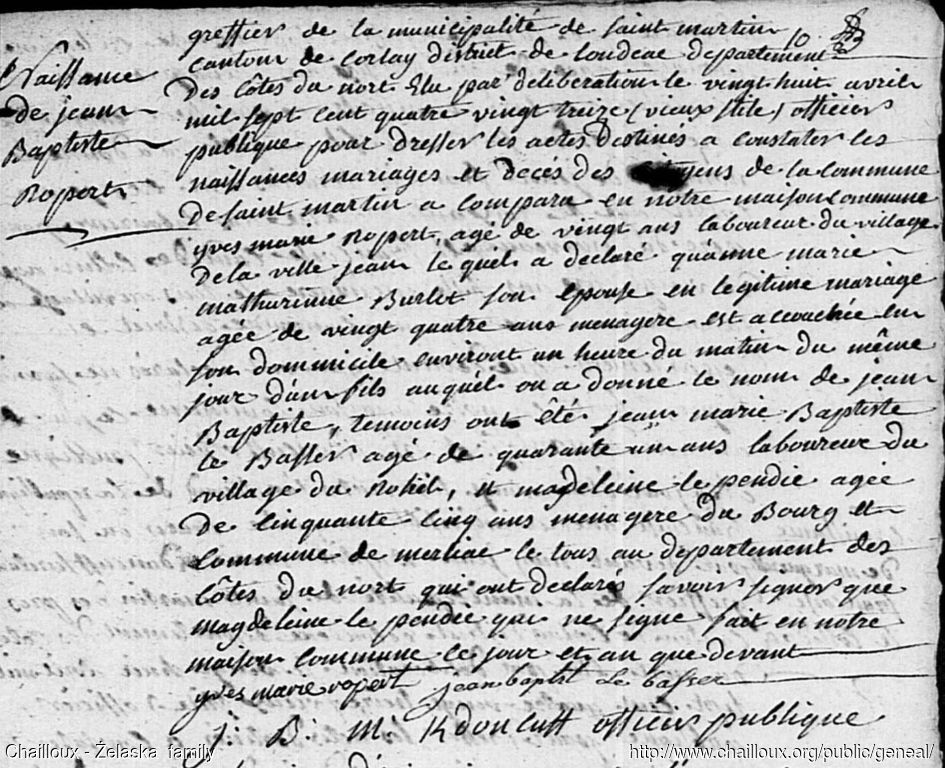 Naissance
de jean
Baptiste
Ropert
greffier de la municipalité de saint martin
10
canton de corlay district de loudeac departement
des côtes du nort Elu par deliberation le vingt huit avril
mil sept cent quatre vingt treize (vieux stile) officier
publique pour dresser les actes destines a constater les
naissances mariages et decés des citoyens de la commune
de saint martin a comparu en notre maison commune
yves marie Ropert, agé de vingt ans laboureur du village
de la ville jean le quel a declaré qu'anne marie
mathurinne Burlot son epouse en legitime mariage
agée de vingt quatre ans menagere est accouchée en
son dommicile environt un heure du matin du même
jour d'un fils auquel on a donné le nom de jean
Baptiste, temoins ont été jean marie Baptiste
le Basser agé de quarante un ans laboureur du
village du Rohel, et magdeleine le pendie agée
de cinquante cinq ans menagere du Bourg et
commune de merliac le tous au departement des
Côtes du nort qui ont declarés savoir signer que
magdeleine le pendie qui ne signe fait en notre
maison commune le jour et an que devant
yves marie ropert jean baptist Le basser
j: B: M: officier publique
Chailloux - Żelaska family
http://www.chailloux.org/public/geneal/